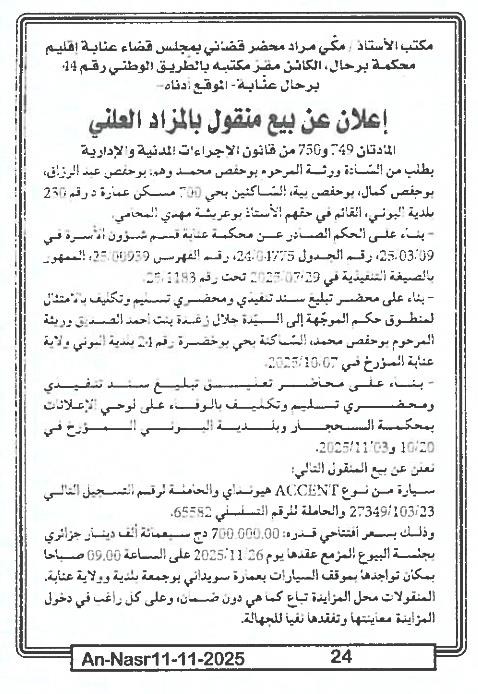 مكتب الأستاذ / مكّي مراد محضر قضائي بمجلس قضاء عنابة إقليم
محكمة برحال، الكائن مقر مكتبه بالطريق الوطني رقم 44
برحال عنّابة- الموقع أدناه-
إعلان عن بيع منقول بالمزاد العلني
المادتان 749 و750 من قانون الاجراءات المدنية والإدارية
بطلب من السّادة ورثة المرحوم بوحفص محمد وهم: بوحفص عبد الرزاق،
بوحفص كمال، بوحفص بية، السّاكنين بحي 700 مسكن عمارة د رقم 230
بلدية البوني، القائم في حقهم الأستاذ بوعريشة مهدي المحامي.
- بناء على الحكم الصادر عن محكمة عنابة قسم شؤون الأسرة في
25/03/09، رقم الجدول 24/04775، رقم الفهرس 25/00939، الممهور
بالصيغة التنفيذية في 2025/07/29 تحت رقم 25/1183.
- بناء على محضر تبليغ سند تنفيذي ومحضري تسليم وتكليف بالامتثال
لمنطوق حكم الموجّهة إلى السيّدة جلال زغدة بنت أحمد الصديق وريثة
المرحوم بوحفص محمد، السّاكنة بحي بوخضرة رقم 24 بلدية البوني ولاية
عنابة المؤرخ في 2025/10/07.
- بناء على محاضر تعليق تبليغ سند تنفيذي
ومحضري تسليم وتكليف بالوفاء على لوحتي الإعلانات
بمحكمة الحجار وبلدية البوني المؤرخ في
10/20 و2025/11/03.
نعلن عن بيع المنقول التالي:
سيارة من نوع ACCENT هيونداي والحاملة لرقم التسجيل التالي
27349/103/23 والحاملة للرقم التسلسلي 65582.
وذلك بسعر افتتاحي قدره: 700.000.00 دج سبعمائة ألف دينار جزائري
بجلسة البيوع المزمع عقدها يوم 2025/11/26 على الساعة 09.00 صباحا
بمكان تواجدها بموقف السيارات بعمارة سويداني بوجمعة بلدية وولاية عنابة.
المنقولات محل المزايدة تباع كما هي دون ضمان، وعلى كل راغب في دخول
المزايدة معاينتها وتفقدها نفيا للجهالة.
An-Nasr11-11-2025 24